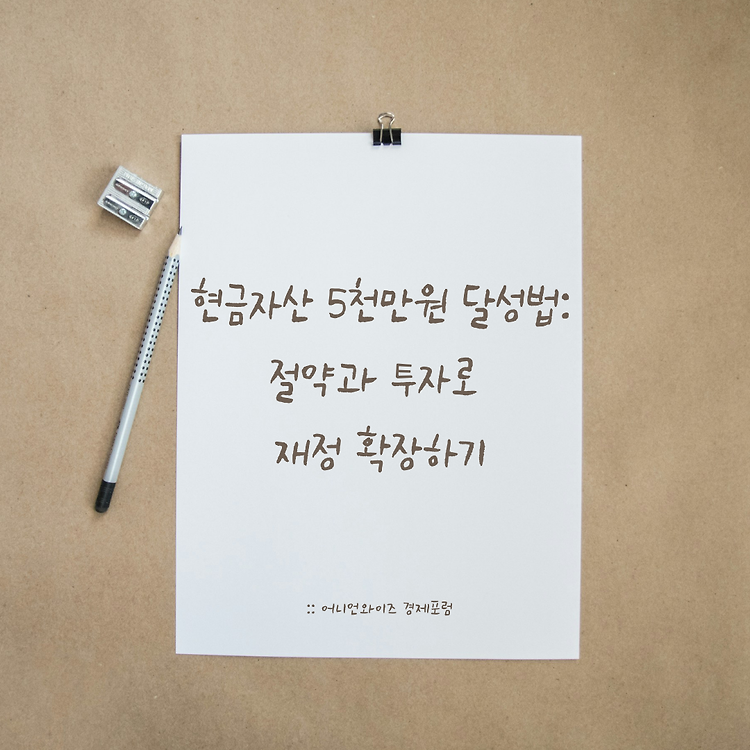 현금자산 5천만원 달성법:
절약과 투자로
재정 확장하기
:: 어니언와이즈 경제포럼